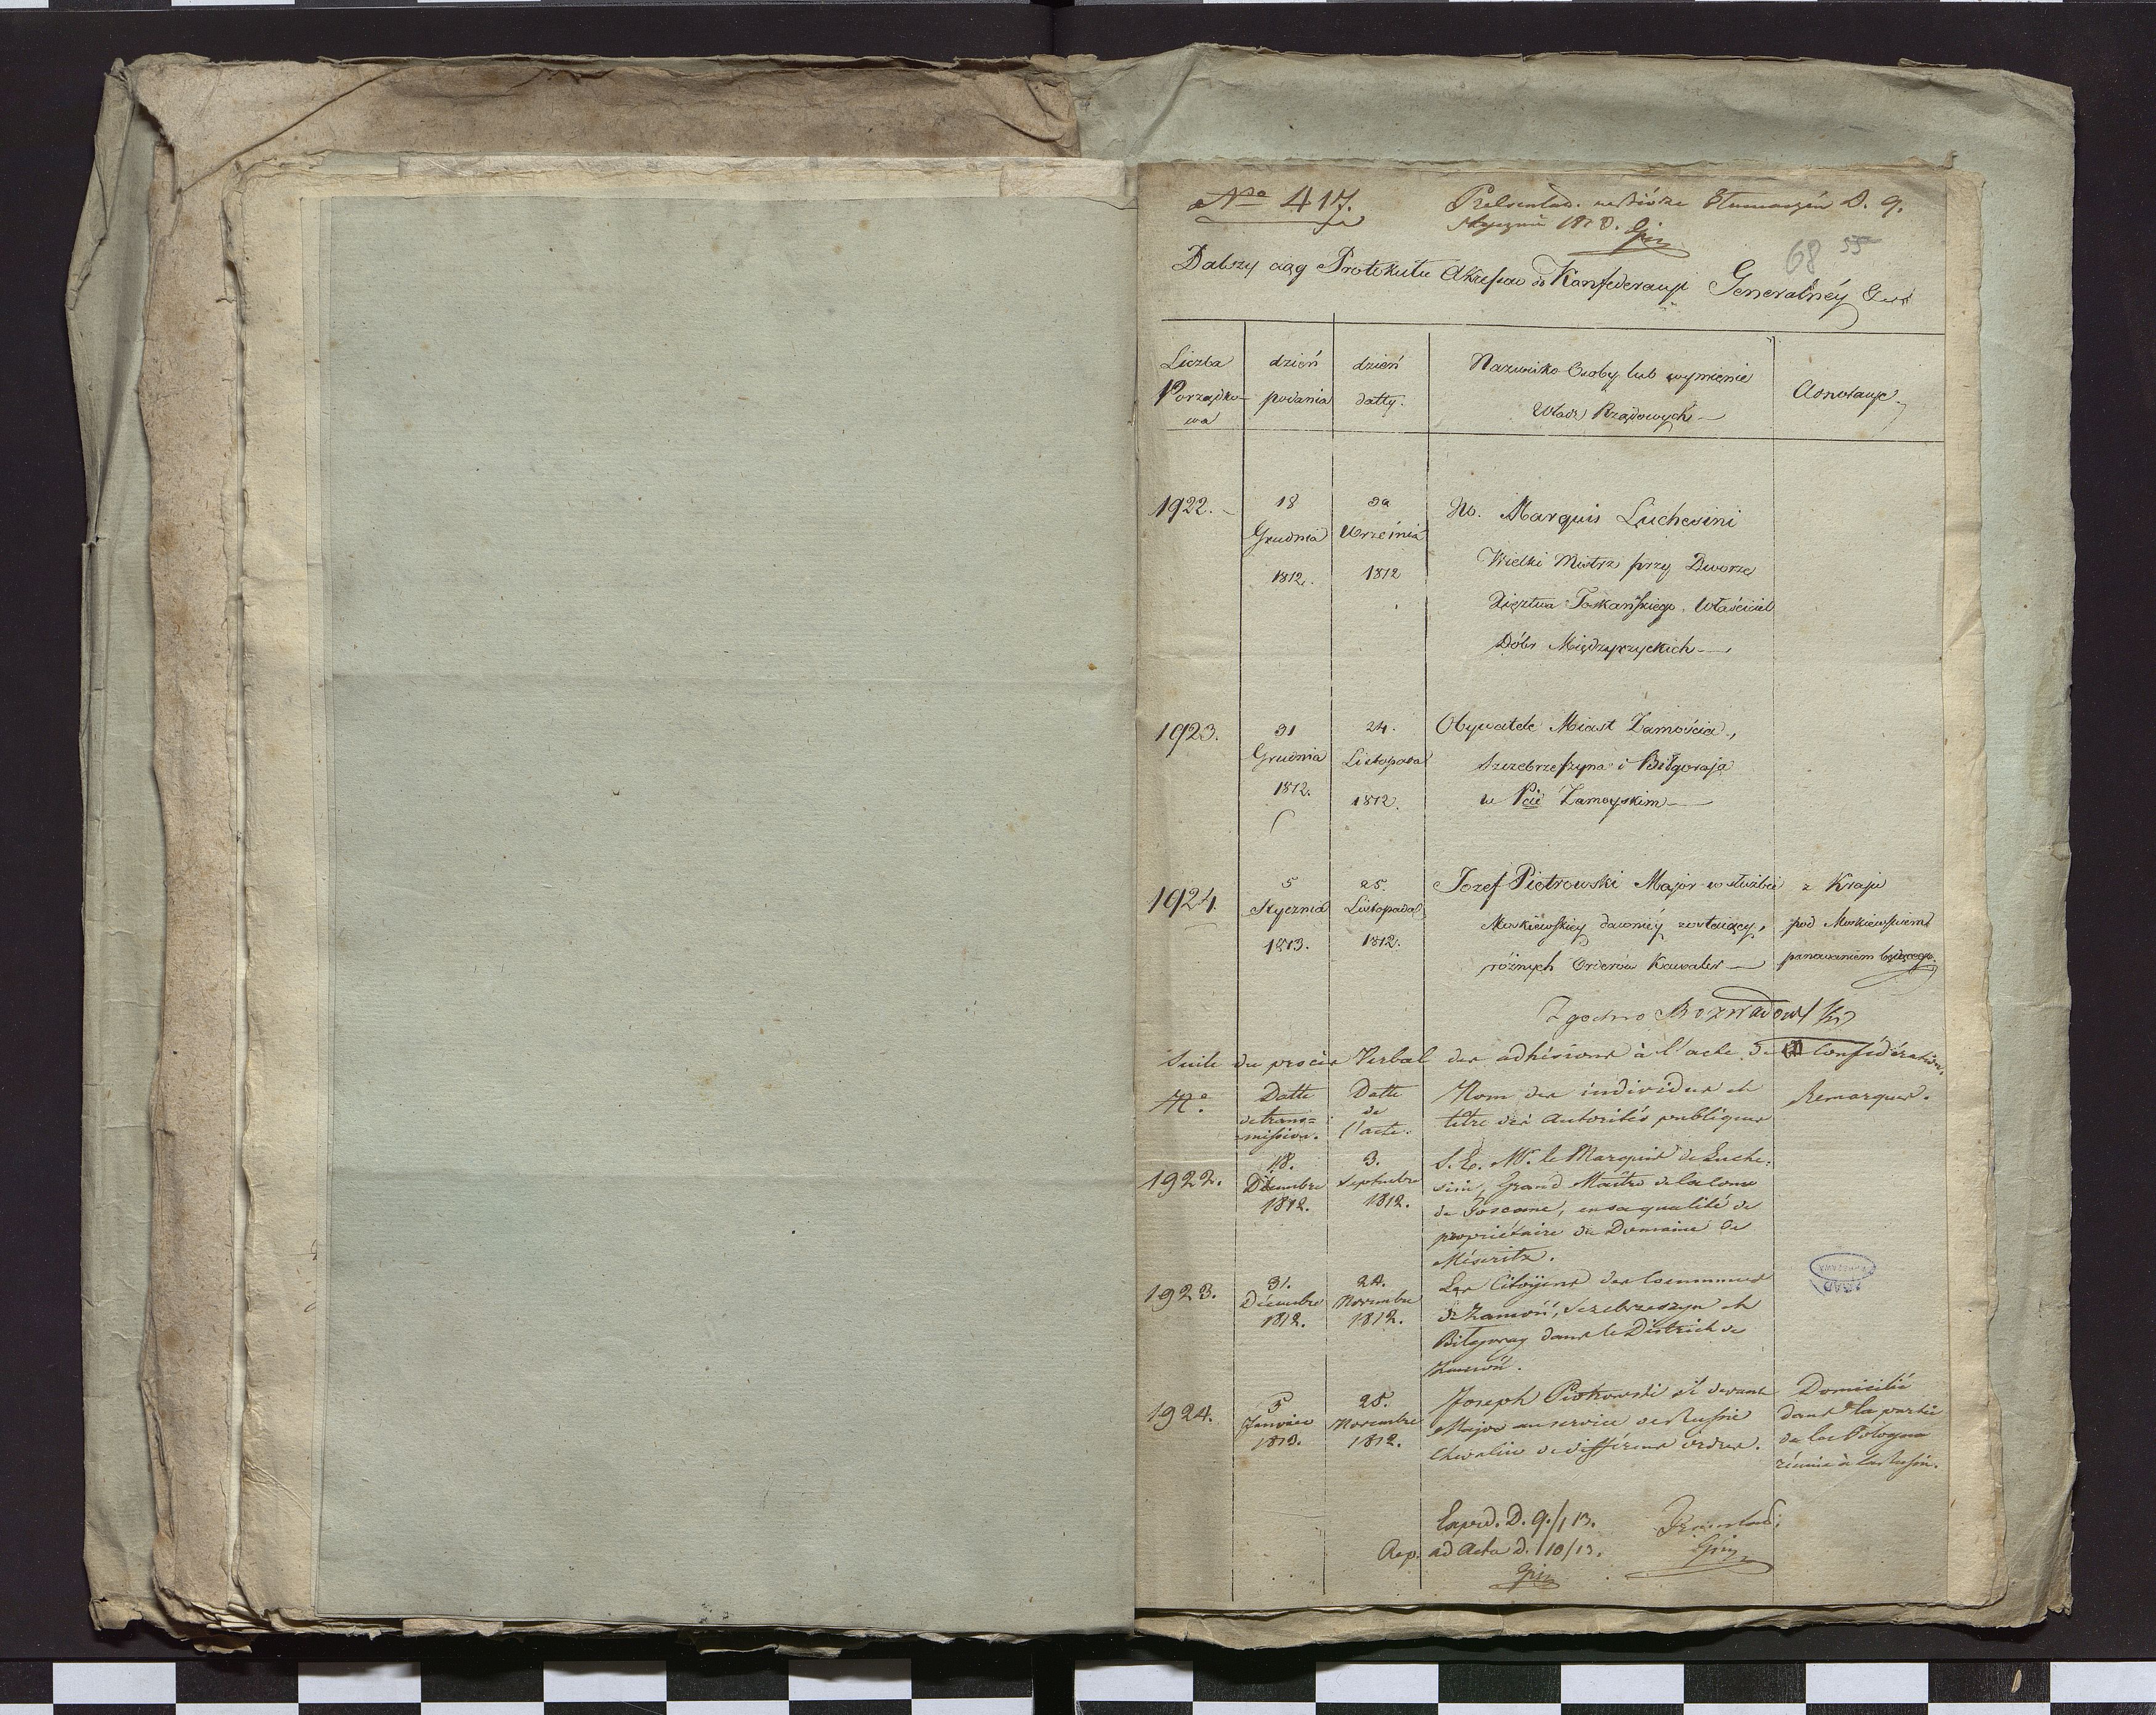 No 417.
w biórze Tłumaczeń D. 9.
Stycznia 1813.
68 55
Dalszy ciąg Protokułu Akcessów do Konfederacyi Generalnéy
Liczba Porządko-wa | dzień podania | dzień datty. | Nazwisko Osoby lub wymienie Władz Rządowych | Adnotacye
1922. | 18 Grudnia 1812. | 3a Września 1812 | Marquis Luchesini
Wielki Mistrz przy Dworze
Xięztwa Toskańskiego, Właściciel
Dóbr Międzyrzyckich
1923. | 31 Grudnia 1812. | 24. Listopada 1812. | Obywatele Miast Zamościa,
Szczebrzeszyna i Biłgoraja
w Pcie Zamoyskim
1924 | 5 Stycznia 1813. | 25. Listopada 1812. | Jozef Piotrowski Major w służbie
Moskiewskiey dawniéy zostaiący,
różnych Orderów Kawaler | z Kraju
pod Moskiewskiem
panowaniem będącego.
Zgodno Rozwadowski
Suite du procès Verbal des adhésions à l'acte de Confédération.
No. | Datte de trans=mission. | Datte de l'acte. | Nom des individus et
titre des autorités publiques | Remarques.
1922. | 18. Décembre 1812. | 3. Septembre 1812. | S. E. Mr. le Marquis de Luche=
sini, Grand Maître de la Cour
de Toscane, en sa qualité de
propriétaire du Domaine de
Méseritz.
1923. | 31. Décembre 1812. | 24. Novembre 1812. | Les Citoyens des Communes
de Zamość, Szczebrzeszyn et
Biłgoray dans le District de
Zamość.
1924. | 5 Janvier 1813. | 25. Novembre 1812. | Joseph Piotrowski ci devant
Major au service de Russie
Chevalier de différens ordres. | Domicilié
dans la partie
de la Pologne
réunie à la Russie.
Exped. D. 9/1 13.
Rep. ad Acta d. 10/13.